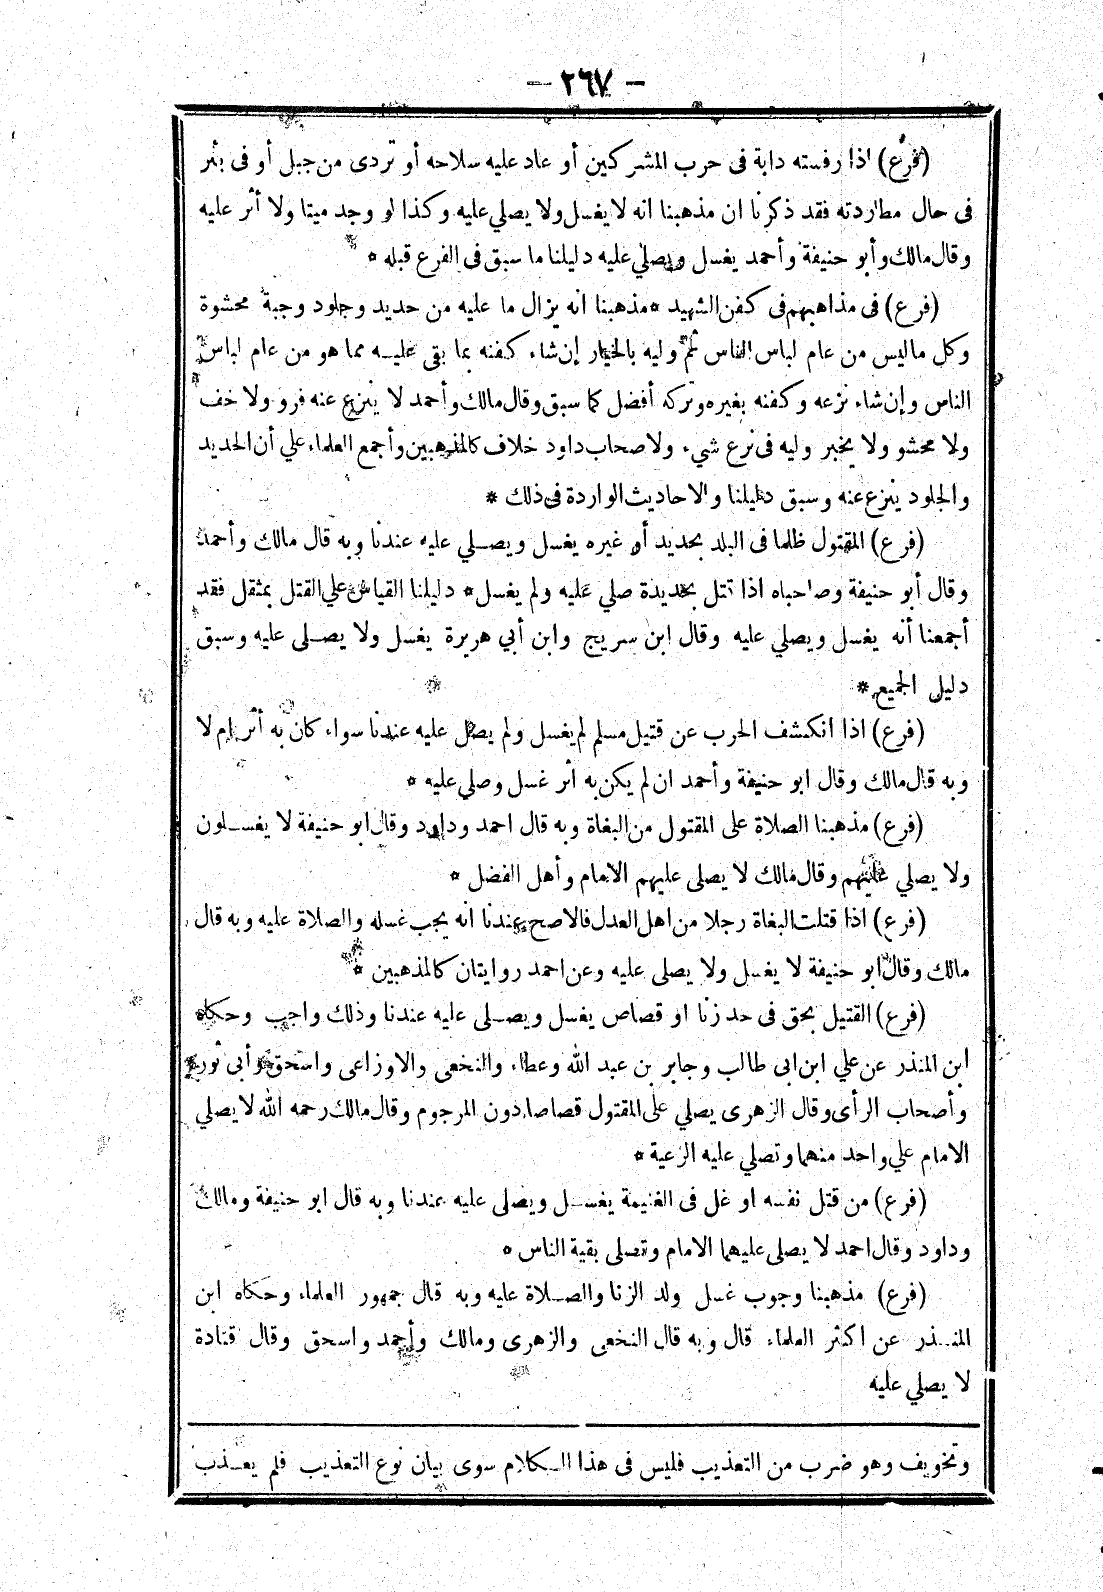 — ٢٦٧ —
(فرع) اذا رفسته دابة فى حرب المشركين أو عاد عليه سلاحه أو تردى من جبل أو فى بئر
فى حال مطاردته فقد ذكرنا ان مذهبنا انه لا يغسل ولا يصلي عليه وكذا لو وجد ميتا ولا أثر عليه
وقال مالك وأبو حنيفة وأحمد يغسل ويصلي عليه دليلنا ما سبق فى الفرع قبله *
(فرع) فى مذاهبهم فى كفن الشهيد * مذهبنا انه يزال ما عليه من حديد وجلود وجبة محشوة
وكل ما ليس من عام لباس الناس ثم وليه بالخيار إن شاء كفنه بما بقى عليه مما هو من عام لباس
الناس وإن شاء نزعه وكفنه بغيره وتركه أفضل كما سبق وقال مالك وأحمد لا ينزع عنه فرو ولا خف
ولا محشو ولا يخبر وليه فى نزع شيء ولاصحاب داود خلاف كالمذهبين وأجمع العلماء علي أن الحديد
والجلود ينزع عنه وسبق دليلنا والاحاديث الواردة فى ذلك *
(فرع) المقتول ظلما فى البلد بحديد أو غيره يغسل ويصلي عليه عندنا وبه قال مالك وأحمد
وقال أبو حنيفة وصاحباه اذا قتل بحديدة صلي عليه ولم يغسل * دليلنا القياس علي القتل بمثقل فقد
أجمعنا أنه يغسل ويصلي عليه وقال ابن سريج وابن أبي هريرة يغسل ولا يصلى عليه وسبق
دليل الجميع *
(فرع) اذا انكشف الحرب عن قتيل مسلم لم يغسل ولم يصل عليه عندنا سواء كان به أثر ام لا
وبه قال مالك وقال ابو حنيفة وأحمد ان لم يكن به أثر غسل وصلي عليه *
(فرع) مذهبنا الصلاة على المقتول من البغاة وبه قال احمد وداود وقال ابو حنيفة لا يغسلون
ولا يصلي عليهم وقال مالك لا يصلى عليهم الامام وأهل الفضل *
(فرع) اذا قتلت البغاة رجلا من اهل العدل فالاصح عندنا انه يجب غسله والصلاة عليه وبه قال
مالك وقال ابو حنيفة لا يغسل ولا يصلى عليه وعن احمد روايتان كالمذهبين *
(فرع) القتيل بحق فى حد زنا او قصاص يغسل ويصلى عليه عندنا وذلك واجب وحكاه
ابن المنذر عن علي ابن ابى طالب وجابر بن عبد الله وعطاء والنخعى والاوزاعى واسحق وأبى ثور
وأصحاب الرأى وقال الزهرى يصلي على المقتول قصاصا دون المرجوم وقال مالك رحمه الله لا يصلي
الامام علي واحد منهما وتصلي عليه الرعية *
(فرع) من قتل نفسه او غل فى الغنيمة يغسل ويصلى عليه عندنا وبه قال ابو حنيفة ومالك
وداود وقال احمد لا يصلى عليهما الامام وتصلى بقية الناس *
(فرع) مذهبنا وجوب غسل ولد الزنا والصلاة عليه وبه قال جمهور العلماء وحكاه ابن
المنذر عن اكثر العلماء قال وبه قال النخعى والزهرى ومالك وأحمد واسحق وقال قتادة
لا يصلي عليه
وتخويف وهو ضرب من التعذيب فليس فى هذا الكلام سوى بيان نوع التعذيب فلم يعذب